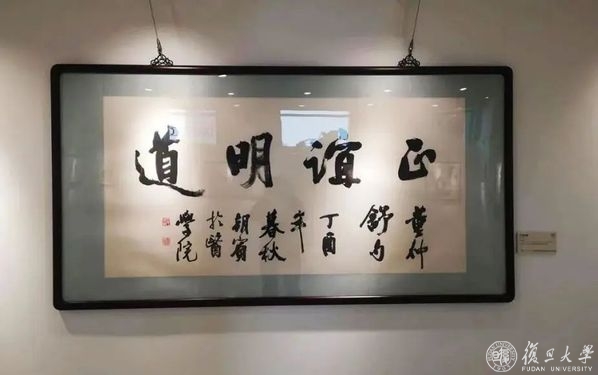 正誼明道
董仲
舒句
丁酉
年
暮秋
朝賓
於醫
學院
復旦大學
FUDAN UNIVERSITY